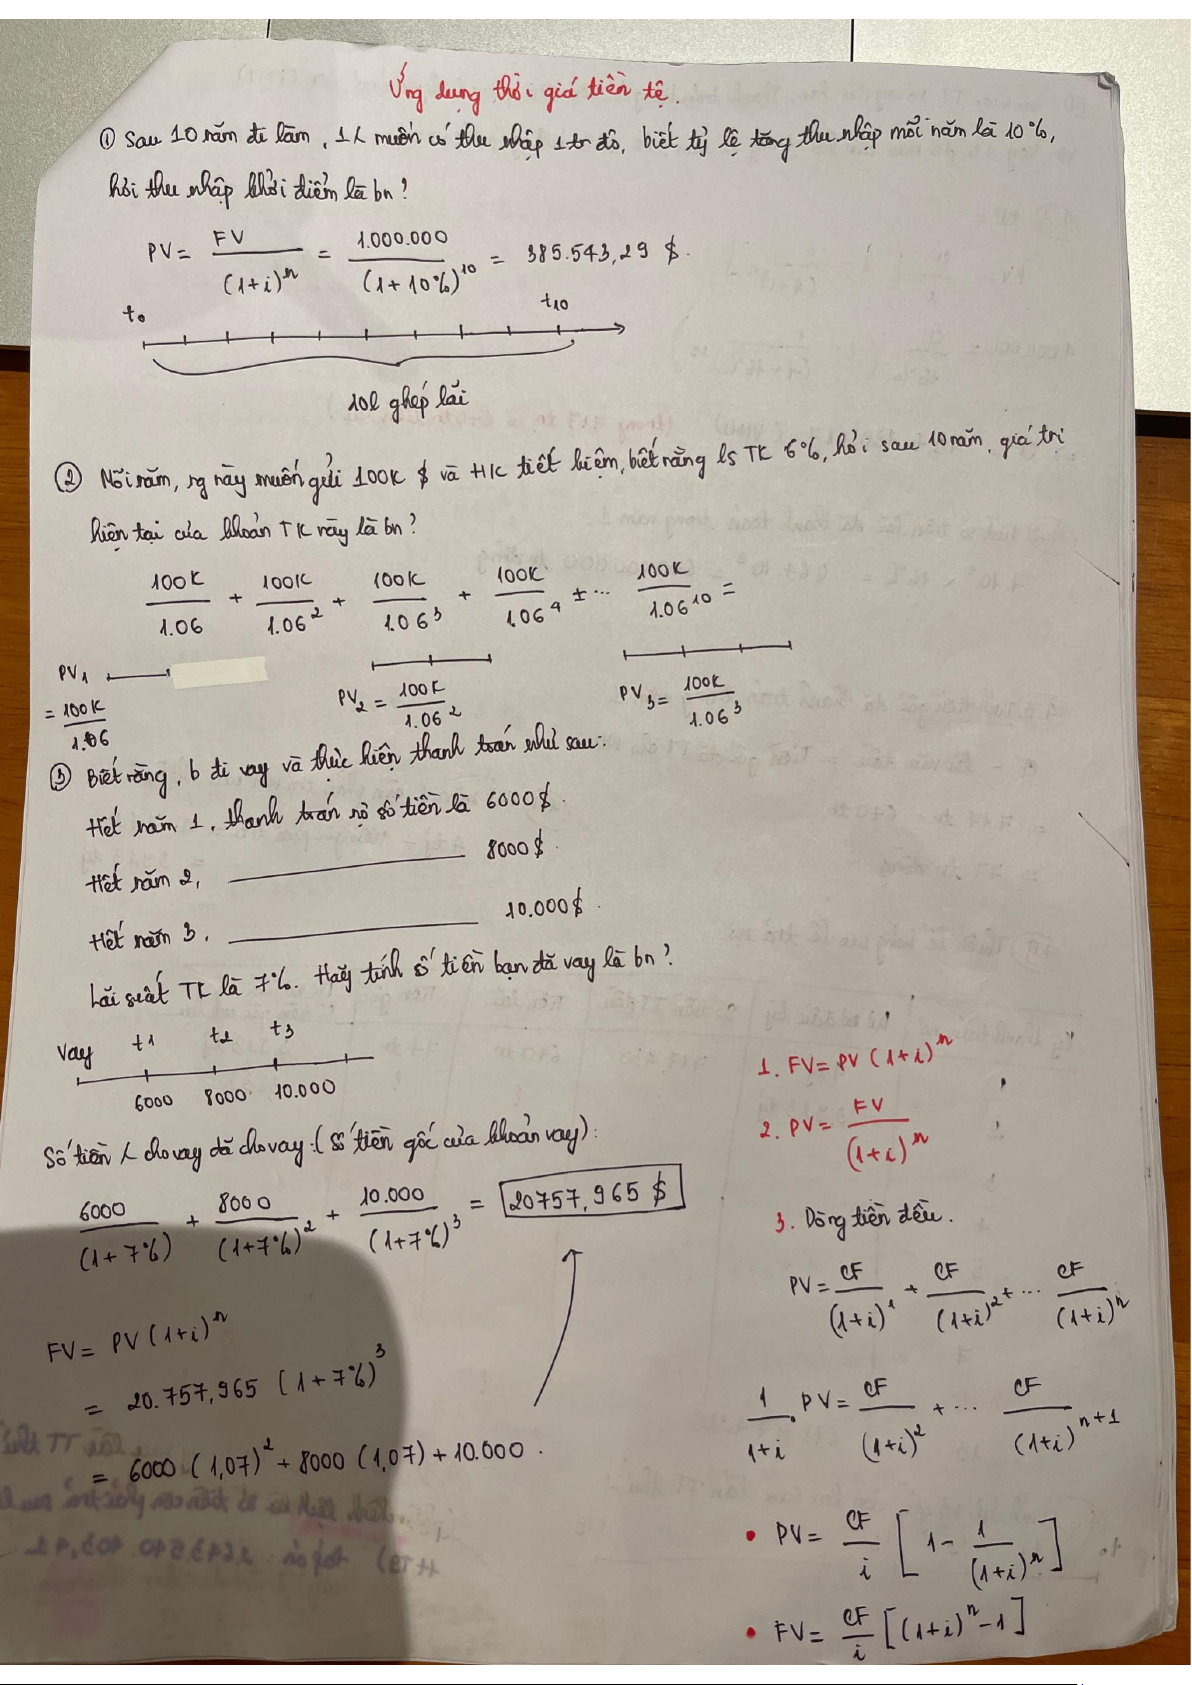 Ứng dụng thời giá tiền tệ.
① Sau 10 năm đi làm, 1 人 muốn có thu nhập 1tr đô, biết tỷ lệ tăng thu nhập mỗi năm là 10%,
hỏi thu nhập khởi điểm là bn?
PV = FV / (1+i)^n = 1.000.000 / (1+10%)^10 = 385.543,29 $.
t0 t10
10l ghép lãi
② Mỗi năm, ng này muốn gửi 100K $ và HK tiết kiệm, biết rằng ls TK 6%, hỏi sau 10 năm, giá trị
hiện tại của khoản TK này là bn?
100K / 1.06 + 100K / 1.06^2 + 100K / 1.06^3 + 100K / 1.06^4 + ... 100K / 1.06^10 =
PV1 = 100K / 1.06 PV2 = 100K / 1.06^2 PV3 = 100K / 1.06^3
③ Biết rằng, b đi vay và thực hiện thanh toán như sau:
Hết năm 1, thanh toán nợ số tiền là 6000$.
Hết năm 2, ———— 8000$.
Hết năm 3, ———— 10.000$.
Lãi suất TK là 7%. Hãy tính số tiền bạn đã vay là bn?
Vay t1 t2 t3
6000 8000 10.000
Số tiền 人 cho vay đã cho vay: (số tiền gốc của khoản vay):
6000 / (1+7%) + 8000 / (1+7%)^2 + 10.000 / (1+7%)^3 = 20757,965 $
FV = PV (1+i)^n
= 20.757,965 (1+7%)^3
= 6000 (1,07)^2 + 8000 (1,07) + 10.000.
1. FV = PV (1+i)^n
2. PV = FV / (1+i)^n
3. Dòng tiền đều.
PV = CF / (1+i)^1 + CF / (1+i)^2 + ... CF / (1+i)^n
1 / 1+i . PV = CF / (1+i)^2 + ... CF / (1+i)^n+1
• PV = CF / i [1 - 1 / (1+i)^n]
• FV = CF / i [(1+i)^n - 1]